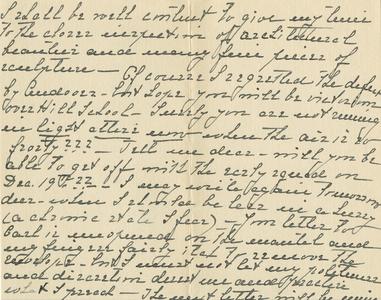 I shall be well content to give my time
to the closer inspection of architectural
beauties and many fine pieces of
sculpture — Of course I regretted the defeat
by Andover - but hope you will be victorious
over Hill School - Surely you are not running
in light attire now when the air is so
frosty??? — Tell me dear will you be
able to get off with the early squad on
Dec. 19th?? — I may write again tomorrow
dear - when I shall be less in a hurry
(a chronic state I fear) — Your letter to
Earl is unopened on the mantel and
my fingers fairly itch to remove the
envelope - but I must not let my politeness
and discretion
what I preach — The next letter will be